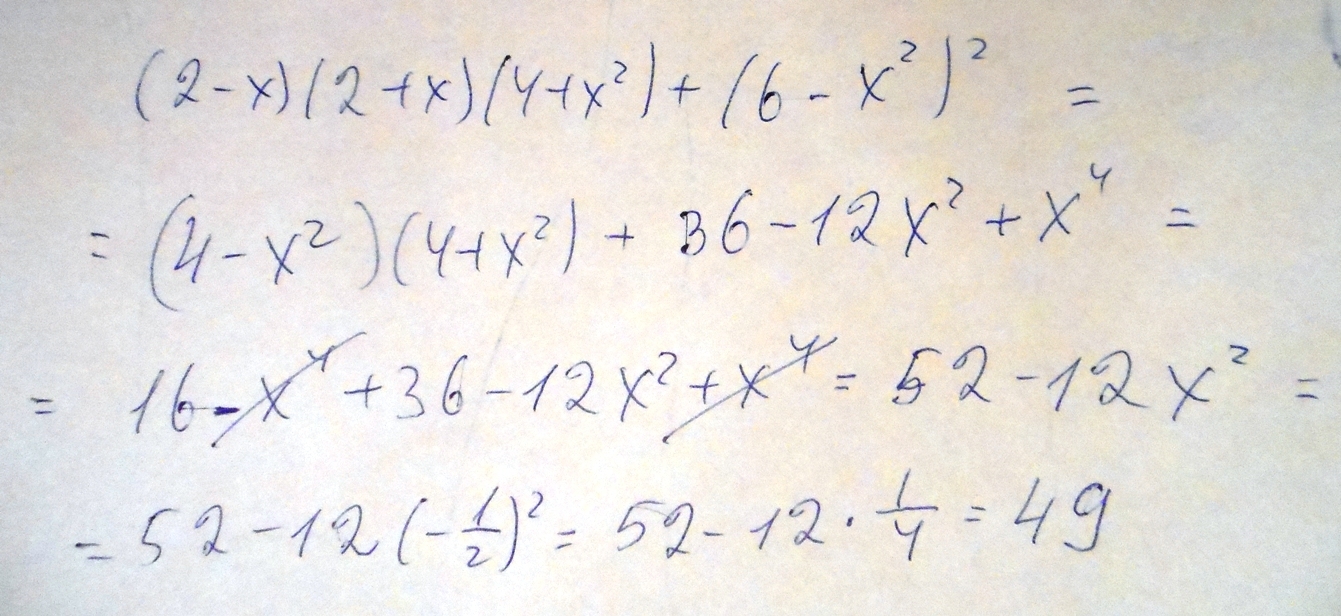 (2-x)(2+x)(4+x²)+(6-x²)² =
= (4-x²)(4+x²) + 36-12x²+x⁴ =
= 16-x⁴+36-12x²+x⁴ = 52-12x² =
= 52-12(-1/2)² = 52-12·1/4 = 49